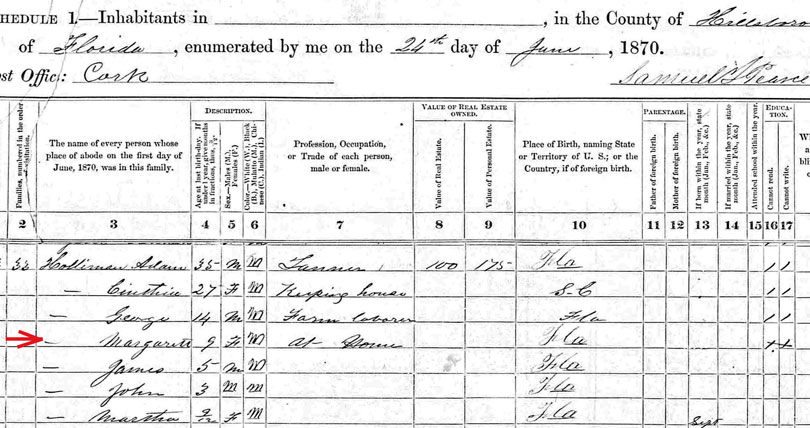 CHEDULE 1.—Inhabitants in , in the County of Hillsboro
of Florida , enumerated by me on the 24th day of June , 1870.
ost Office: Cork
Families, numbered in the order of visitation.
The name of every person whose place of abode on the first day of June, 1870, was in this family.
DESCRIPTION.
Age at last birth-day. If under 1 year, give months in fractions, thus,
Sex.—Males (M.), Females (F.)
Color.—White (W.), Black (B.), Mulatto (M.), Chinese (C.), Indian (I.)
Profession, Occupation, or Trade of each person, male or female.
VALUE OF REAL ESTATE OWNED.
Value of Real Estate.
Value of Personal Estate.
Place of Birth, naming State or Territory of U. S.; or the Country, if of foreign birth.
PARENTAGE.
Father of foreign birth.
Mother of foreign birth.
If born within the year, state month (Jan., Feb., &c.)
If married within the year, state month (Jan., Feb., &c.)
EDUCATION.
Attended school within the year.
Cannot read.
Cannot write.
2 3 4 5 6 7 8 9 10 11 12 13 14 15 16 17
33 Holliman Adam 35 M M Farmer 100 175 Fla / /
— Cinthia 27 F M Keeping house S-C / /
— George 14 M M Farm laborer Fla / /
— Margarett 9 F M At Home Fla
— James 5 M M Fla
— John 3 M M Fla
— Martha 9/12 F M Fla Sept